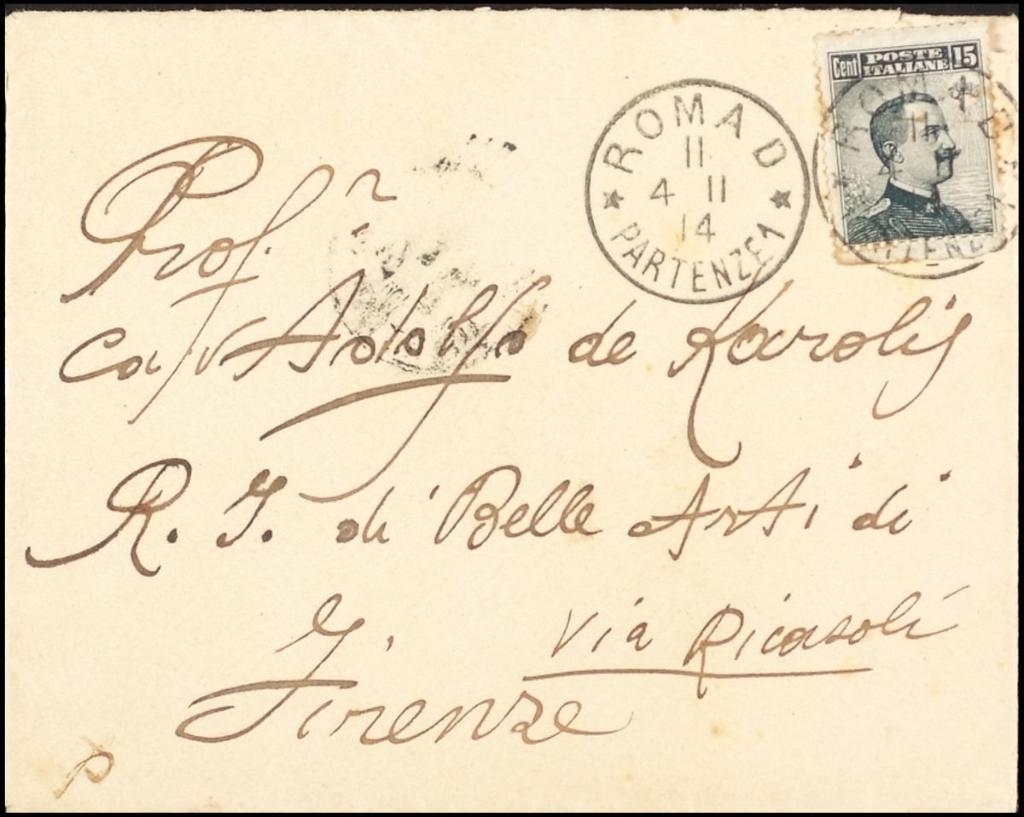 Cent POSTE ITALIANE 15
ROMA D
11
4 II
14
★ PARTENZE 1 ★
Prof.r
cav Adolfo de Karolis
R. I. di Belle Arti di
F.
Via Ricasoli
Firenze